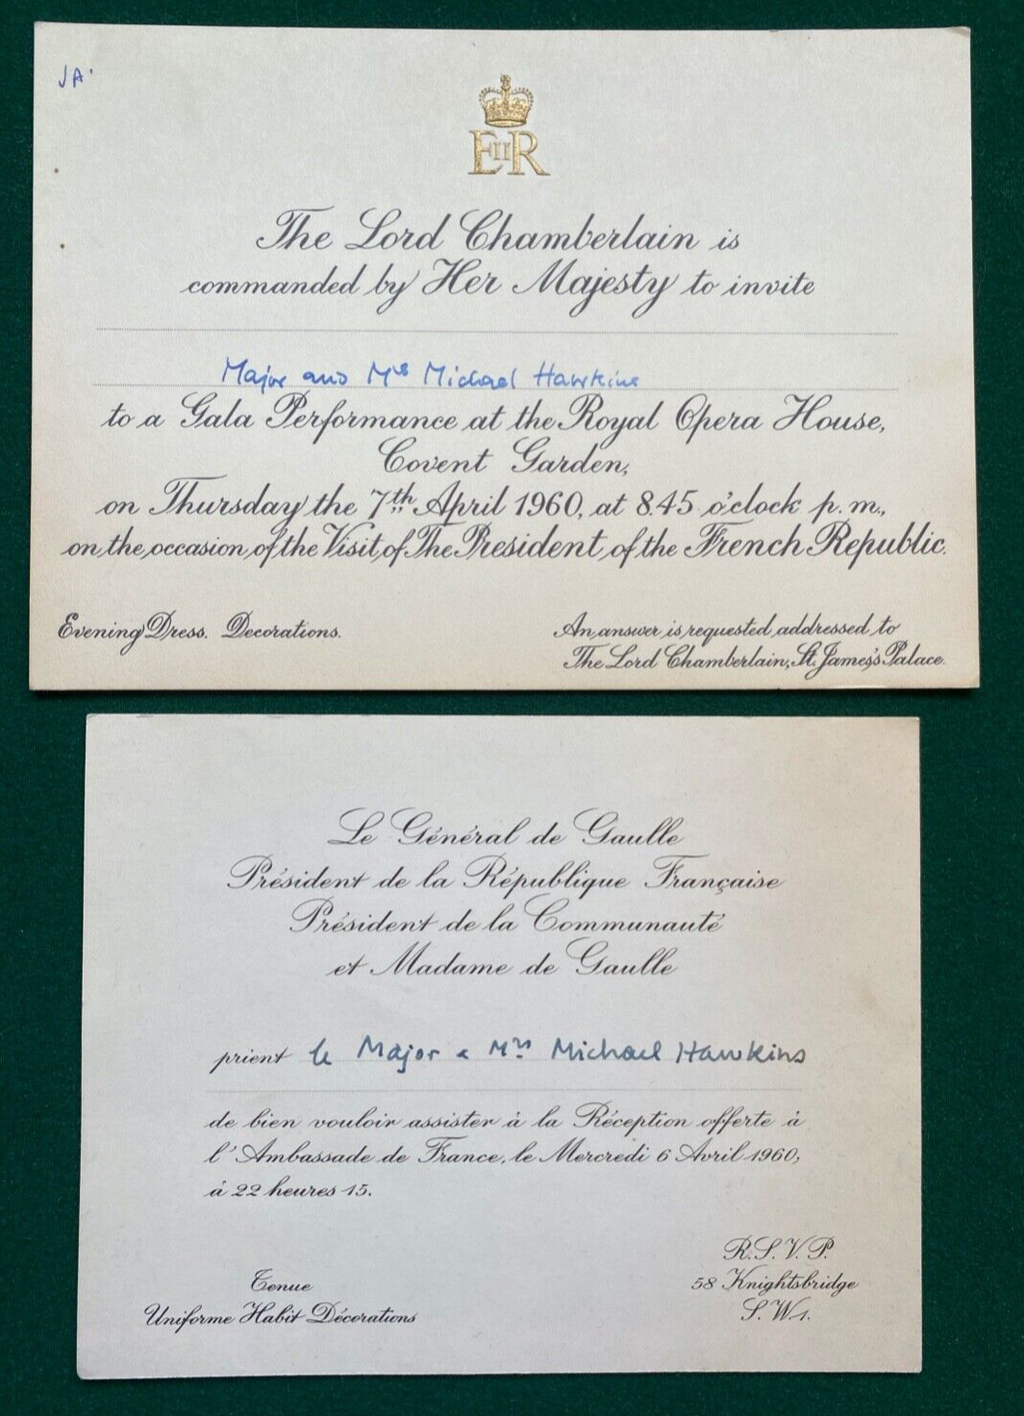 JA
EIIR
The Lord Chamberlain is
commanded by Her Majesty to invite
Major and Mrs Michael Hawkins
to a Gala Performance at the Royal Opera House,
Covent Garden,
on Thursday the 7th April 1960, at 8.45 o'clock p.m.,
on the occasion of the Visit of The President of the French Republic.
Evening Dress. Decorations.
An answer is requested addressed to
The Lord Chamberlain, St. James's Palace.
Le Général de Gaulle
Président de la République Française
Président de la Communauté
et Madame de Gaulle
prient le Major & Mrs Michael Hawkins
de bien vouloir assister à la Réception offerte à
l'Ambassade de France, le Mercredi 6 Avril 1960,
à 22 heures 15.
R.S.V.P.
58 Knightsbridge
S.W.1.
Tenue
Uniforme Habit Décorations